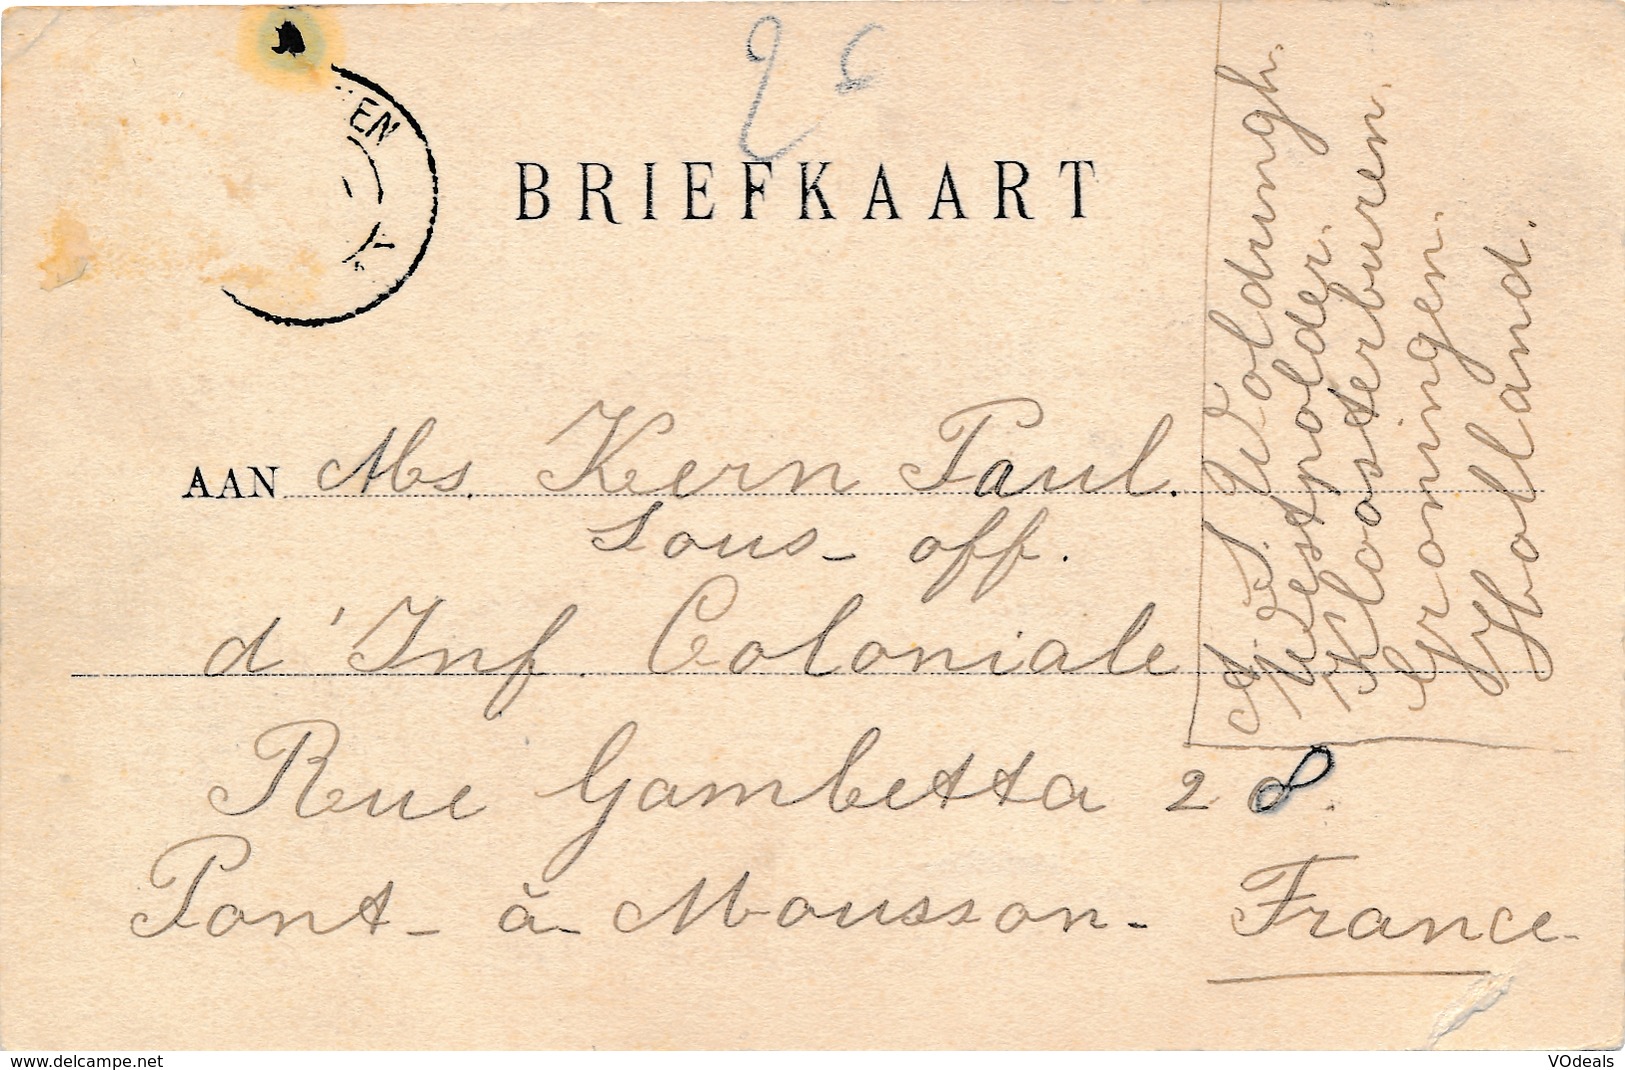 EN
26
BRIEFKAART
AAN Ms. Kern Paul.
Sous-off.
d'Inf. Coloniale
Rue Gambetta 28.
Pont-à-Mousson-France.
A. S. Woldringh.
Westpolder.
Kloosterburen.
Groningen.
Holland.
www.delcampe.net
VOdeals